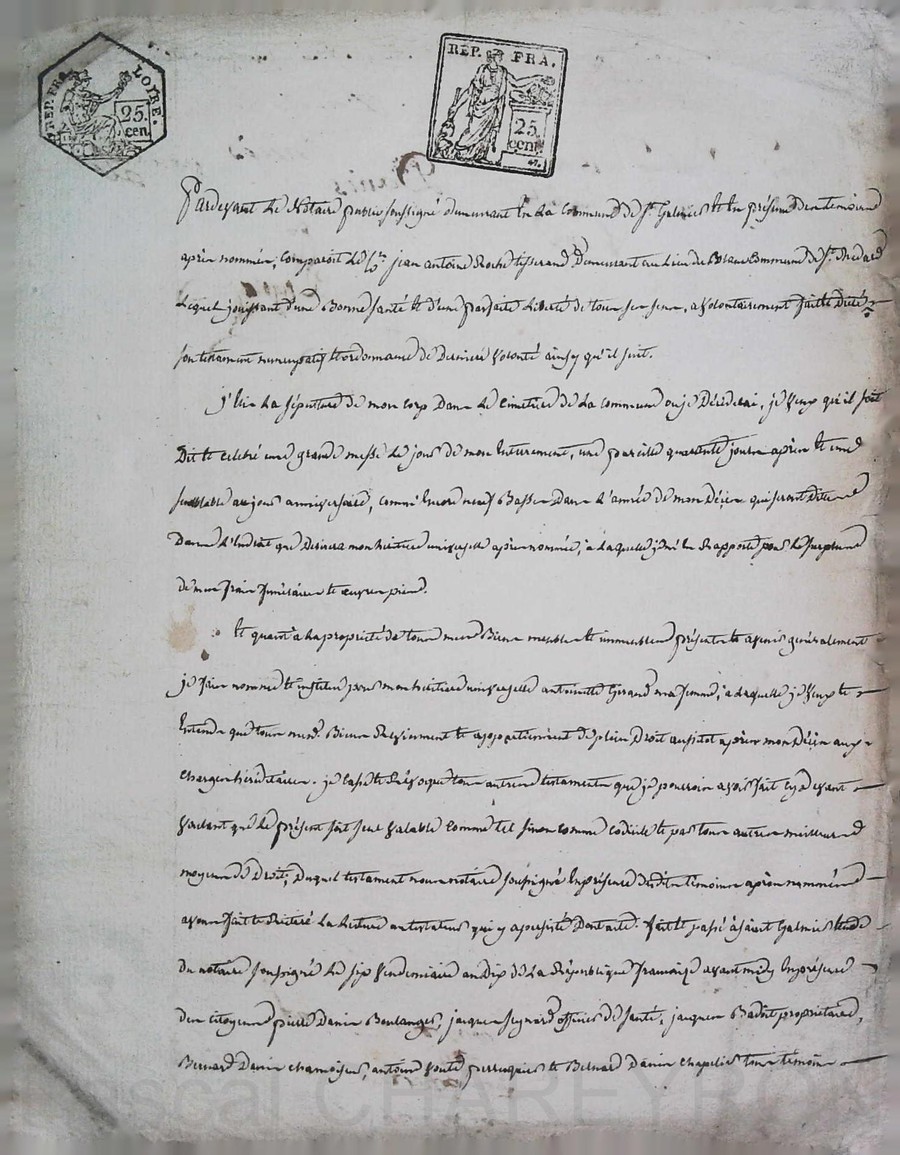 REP. FRA. LOIRE.
25.
cen.
REP. FRA.
25.
cen.
Pardevant le Notaire public soussigné demeurant en la Commune de St. Galmier et en présence des temoins
après nommés, Comparoit le Cen. jean antoine Roche tisserand Demeurant au Lieu de Commune de St. Medard
Lequel jouissant d'une Bonne santé et d'une parfaite Liberté de tous ses sens, a volontairement fait et Dicté
son testament nuncupatif et ordonnance de Derniere Volonté ainsy qu'il suit.
j'élis La sépulture de mon corp Dans Le Cimetiere de La Commune ou je Décéderai, je Veux qu'il soit
Dit et celebré une grande messe Le jour de mon Enterrement, une pareille quarante jours après et une
semblable au jour anniversaire, comme Encore neuf Basses Dans L'année de mon Décès qui seront Dittes
Dans L'Endroit que Desirera mon héritiere universelle après nommée, à Laquelle je m'en Rapporte pour Le surplus
de mes frais funéraires et œuvres pies.
Et quant à La propriété de tous mes Biens meubles et immeubles présents et avenir généralement
je fais nomme et institue pour mon héritiere universelle antoinette Girard ma femme, à Laquelle je Veux et
Entends que tous mesd. Biens Reviennent et appartiennent de plein Droit aussitot après mon Décès aux
charges héréditaires. je Casse et Révoque tous autres testaments que je pourrois avoir fait Cy devant
Voulant que Le présent soit seul Valable Comme tel sinon comme codicile et par tous autres meilleurs
moyens de Droit; Duquel testament nous notaire soussigné En présence desdits témoins après nommés
avons fait et Réitéré La Lecture au testateur qui y a persisté Dont acte. fait et passé à saint Galmier Etude
du notaire soussigné Le six Vendemiaire an dix de La République française avant midy En présence
des citoyens pierre Danis Boulanger, jacques officier de santé, jacques Badoit propriétaire,
Bernard Danis chamoiseur, antoine perruquier et Bernard Danis chapelier tous témoins
Pascal CHAREYRON